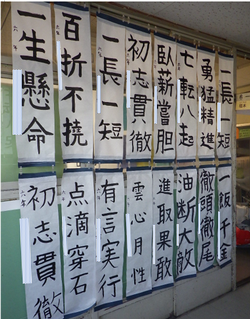 一長一短
勇猛精進
七転八起
臥薪嘗胆
初志貫徹
一長一短
百折不撓
一生懸命
一飯千金
徹頭徹尾
油断大敵
進取果敢
雲心月性
有言実行
点滴穿石
初志貫徹